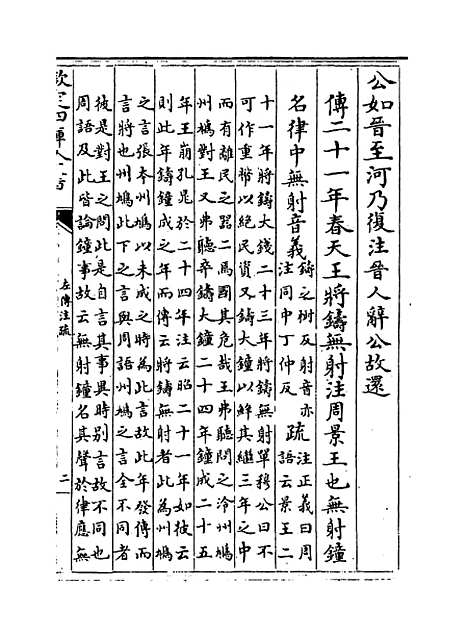 公如晉至河乃復注晉人辭公故還
傳二十一年春天王將鑄無射注周景王也無射鐘
名律中無射音義
鑄之樹反射音亦
注同中丁仲反
疏
注正義曰周
語云景王二
十一年將鑄大錢二十三年將鑄無射單穆公曰不
可作重幣以絶民資又鑄大鐘以鮮其繼三年之中
而有離民之器二焉國其危哉王弗聽問之泠州鳩
州鳩對王又弗聽卒鑄大鐘二十四年鐘成二十五
年王崩孔晁於二十四年注云昭二十一年如彼云
則此年鑄鐘成之年而傳云將鑄無射者此為州鳩
之言張本州鳩以未成之時為此言故此年發傳而
言將也州鳩此下之言與周語州鳩之言全不同者
彼是對王之問此是自言其事異時别言故不同也
周語及此皆論鐘事故云無射鐘名其聲於律應無
欽定四庫全書
左傳注疏
二